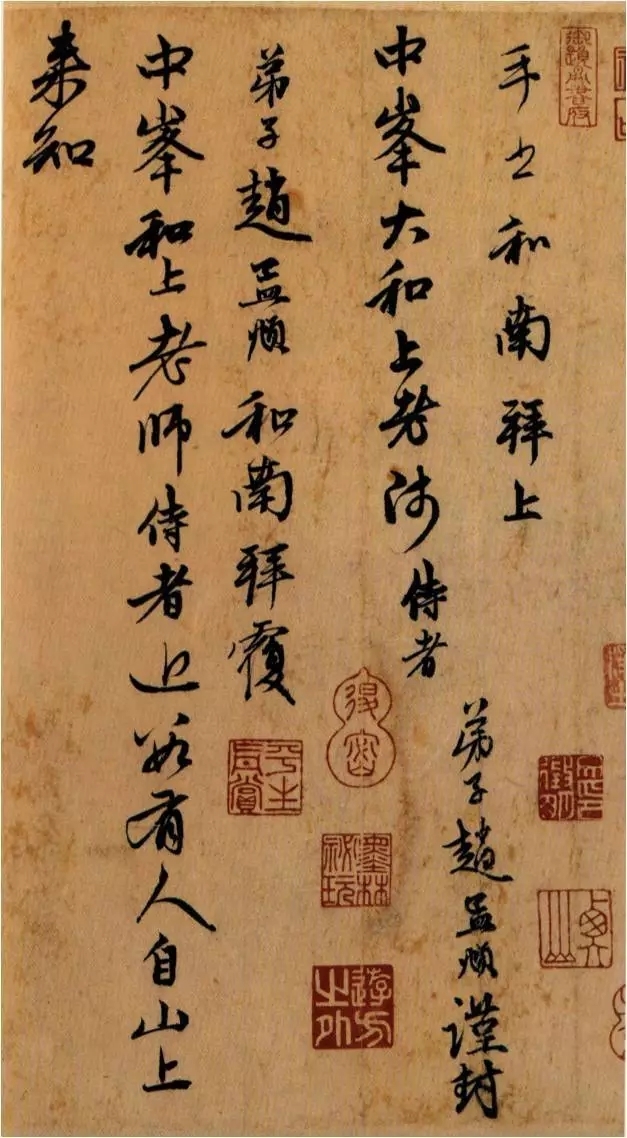 手书和南拜上
中峯大和上老师侍者
弟子趙孟頫謹封
弟子趙孟頫和南拜覆
中峯和上老师侍者近若有人自山上
来知
平生真賞
墨林祕玩